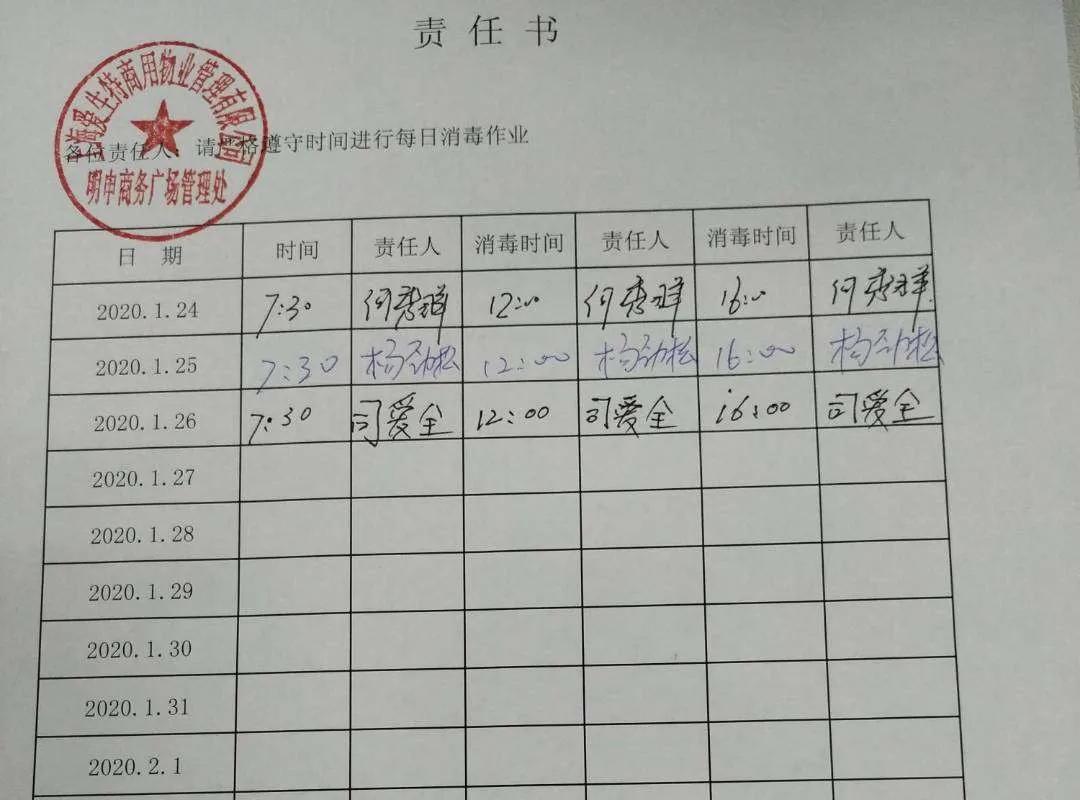 责任书
海爱生特商用物业管理有限公司
明申商务广场管理处
各位责任人：请严格遵守时间进行每日消毒作业
日 期 时间 责任人 消毒时间 责任人 消毒时间 责任人
2020.1.24 7:30 何秀群 12:00 何秀群 16:00 何秀群
2020.1.25 7:30 杨劲松 12:00 杨劲松 16:00 杨劲松
2020.1.26 7:30 司爱全 12:00 司爱全 16:00 司爱全
2020.1.27
2020.1.28
2020.1.29
2020.1.30
2020.1.31
2020.2.1